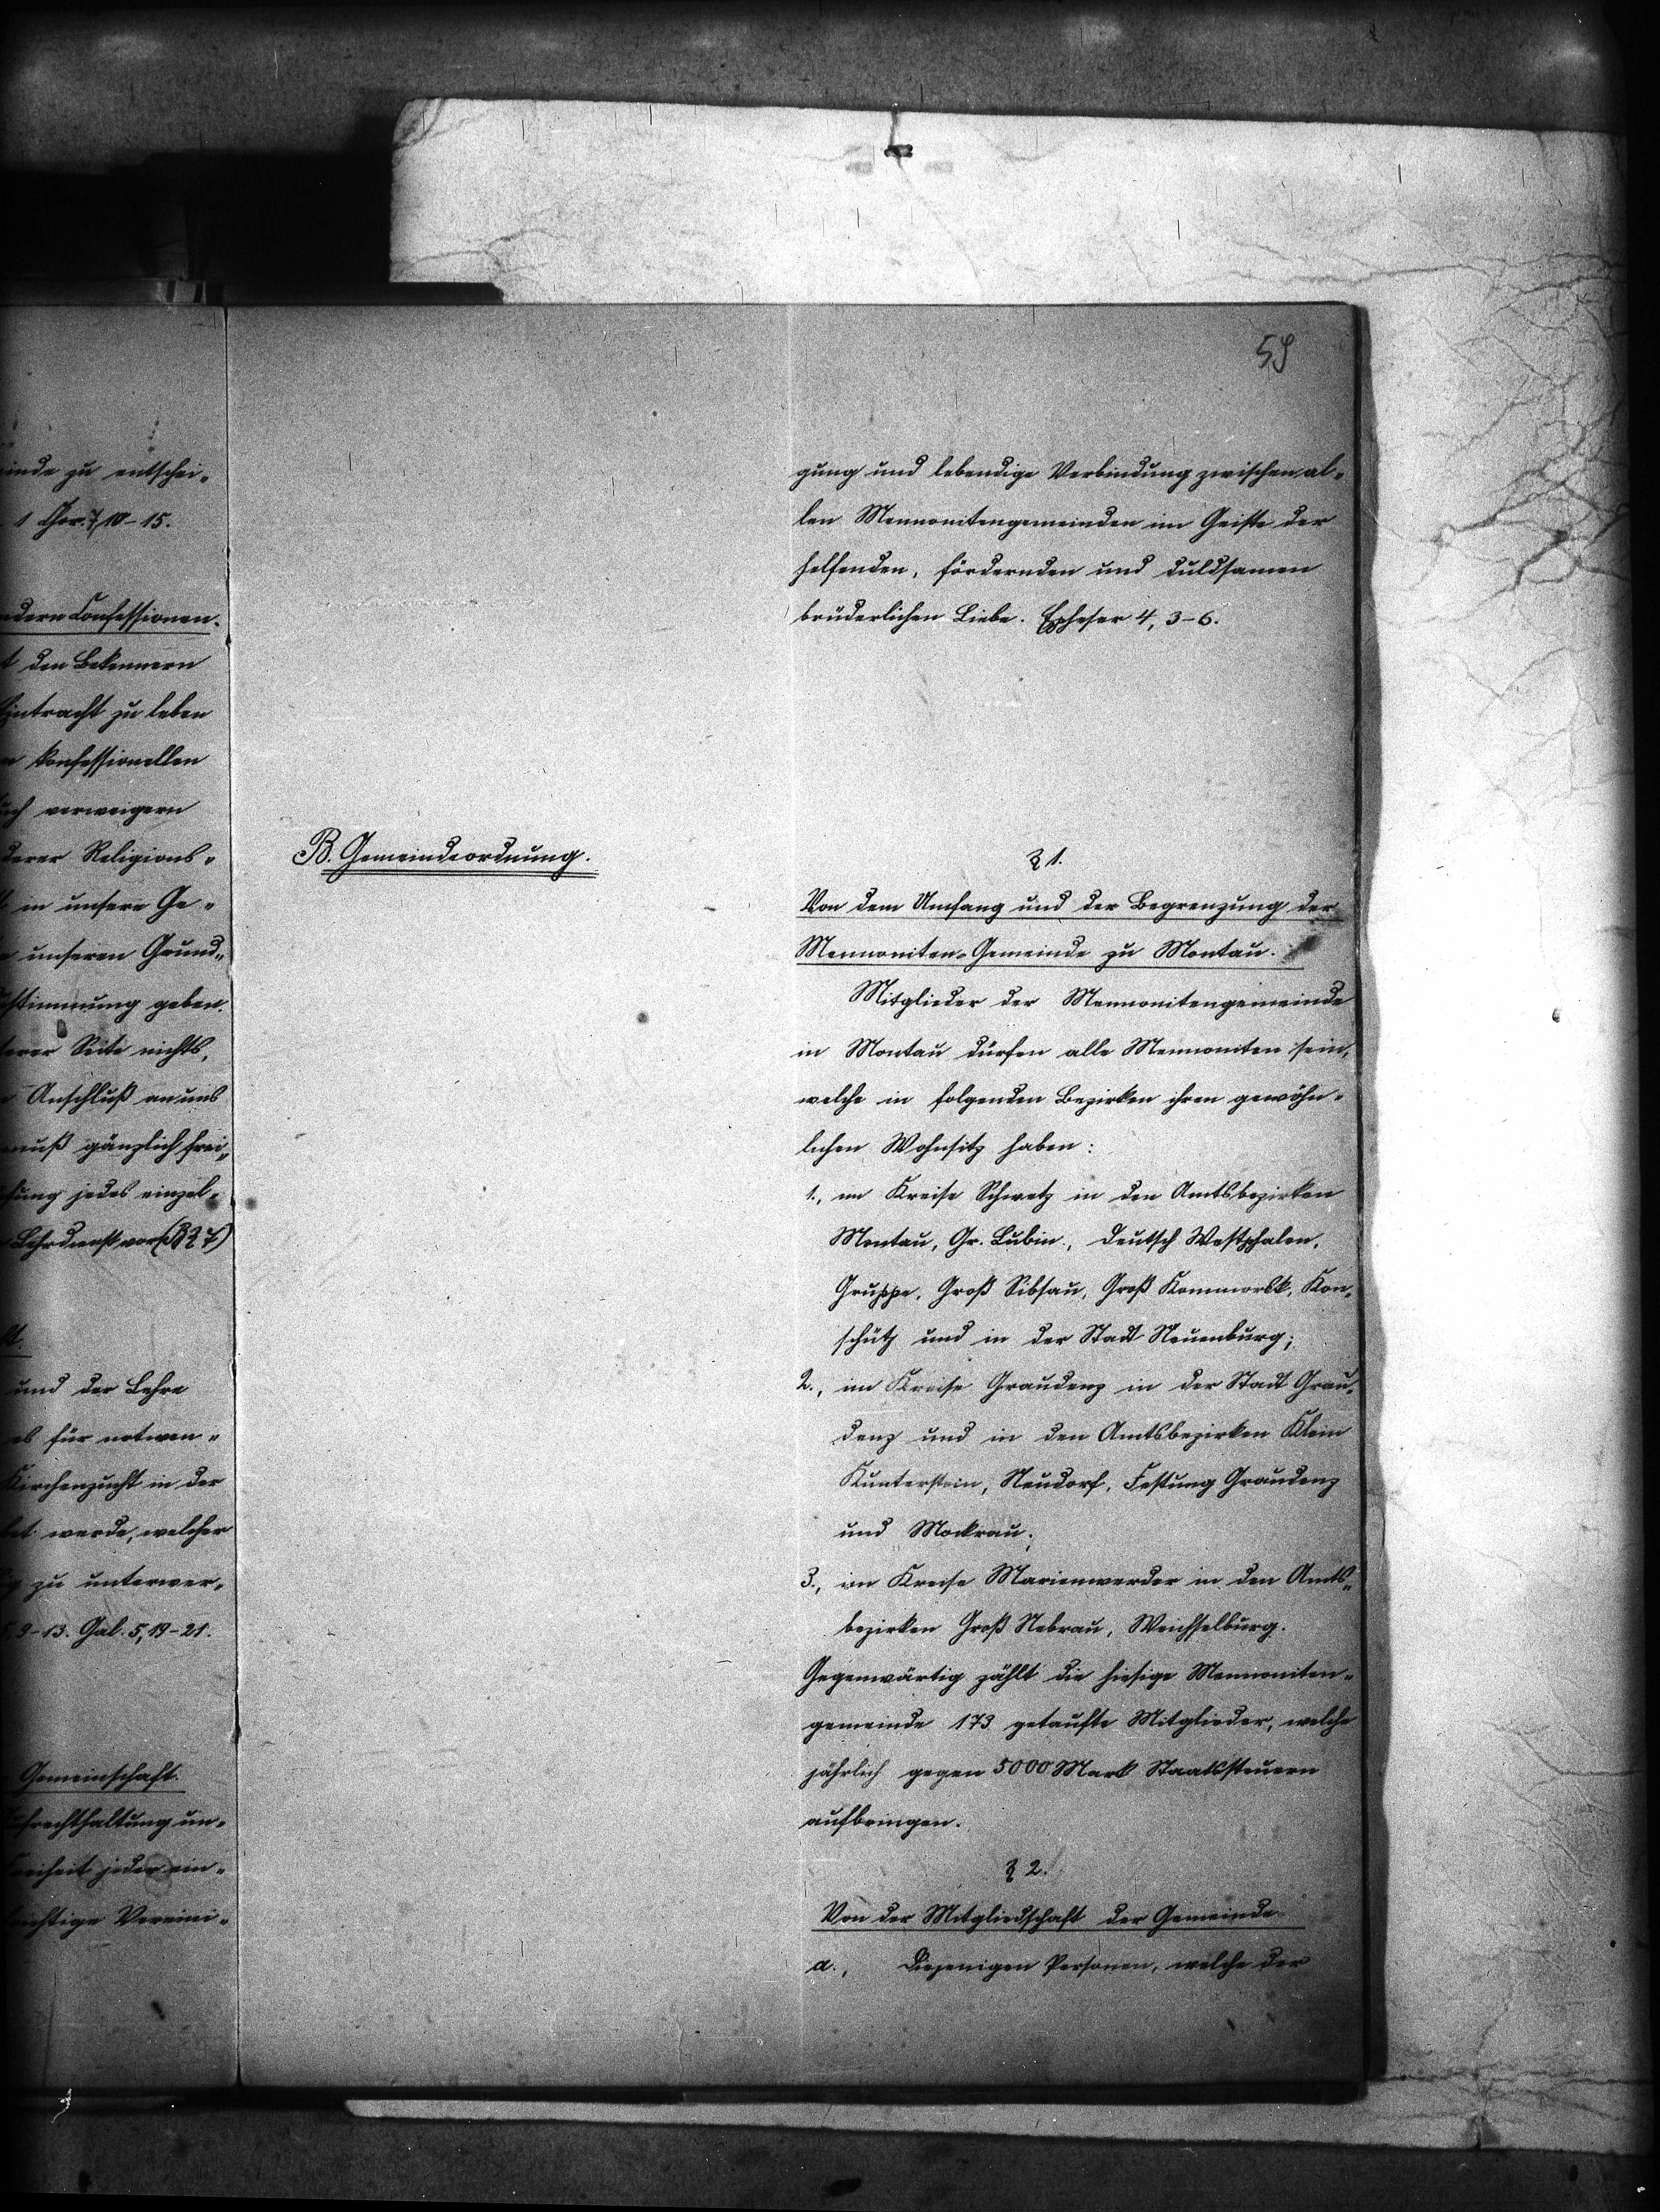 inde zu entschei-
1 Cor. 7, 10-15.
ndern Confessionen.
t den Bekennern
Eintracht zu leben
n konfessionellen
uch verweigern
derer Religions-
t in unsere Ge-
unseren Grund-
estimmung geben.
serer Seite nichts,
Anschluß an uns
muß gänzlich frei-
fung jedes einzel-
Lehrdienst vor (B § 7)
lt.
und der Lehre
es für notwen-
Kirchenzucht in der
bet werde, welcher
ig zu unterwer-
5, 9-13. Gal. 5, 19-21.
Gemeinschaft.
ufrechthaltung un-
Freiheit jeder ein-
wichtige Vereini-
59
gung und lebendige Verbindung zwischen al-
len Mennonitengemeinden im Geiste der
helfenden, fördernden und duldsamen
brüderlichen Liebe. Epheser 4, 3-6.
B. Gemeindeordnung.
§ 1.
Von dem Umfang und der Begrenzung der
Mennoniten-Gemeinde zu Montau.
Mitglieder der Mennonitengemeinde
in Montau dürfen alle Mennoniten sein,
welche in folgenden Bezirken ihren gewöhn-
lichen Wohnsitz haben:
1., im Kreise Schwetz in den Amtsbezirken
Montau, Gr. Lubin, Deutsch Westphalen,
Gruppe, Groß Sibsau, Groß Kommorsk, Kon-
schütz und in der Stadt Neuenburg;
2., im Kreise Graudenz in der Stadt Grau-
denz und in den Amtsbezirken Klein
Kunterstein, Neudorf, Festung Graudenz
und Mockrau;
3., im Kreise Marienwerder in den Amts-
bezirken Groß Nebrau, Weichselburg.
Gegenwärtig zählt die hiesige Mennoniten-
gemeinde 173 getaufte Mitglieder, welche
jährlich gegen 5000 Mark Staatssteuern
aufbringen.
§ 2.
Von der Mitgliedschaft der Gemeinde.
a., Diejenigen Personen, welche der